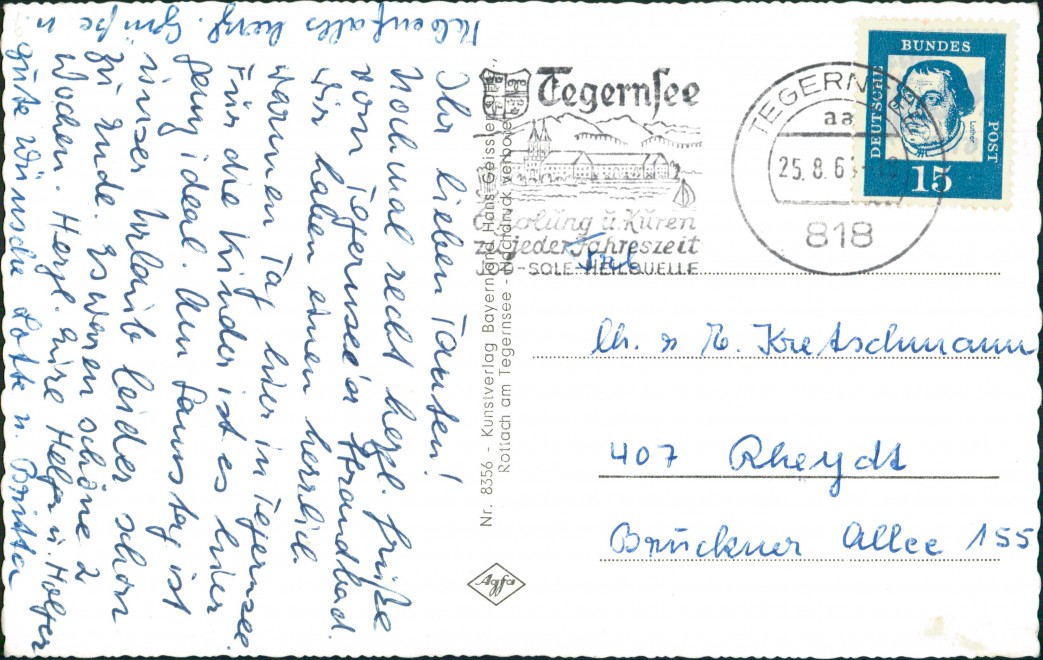 Ihr lieben Tanten!
Nochmal recht herzl. Grüße
vom Tegernsee'er Strandbad.
Wir haben einen herrlich
warmen Tag hier in Tegernsee.
Für die Kinder ist es hier
ganz ideal. Am Samstag ist
unser Urlaub leider schon
zu Ende. Es waren schöne 2
Wochen. Herzl. Eure Helga u. Holger
Ebenfalls herzl. Grüße u.
gute Wünsche Lotte u. Britta
Nr. 8356 - Kunstverlag Bayernland Hans Geissler,
Rottach am Tegernsee - Nachdruck verboten
Agfa
Tegernsee
Erholung u. Kuren
zu jeder Jahreszeit
JOD-SOLE-HEILQUELLE
TEGERNSEE
aa
25.8.6
818
DEUTSCHE
BUNDES
POST
Luther
15
Frl.
Ch. u. E. Kretschmann
407 Rheydt
Brückner Allee 155